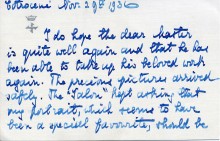 Cotroceni Nov. 29th 1936
I do hope the dear master
is quite well again and that he has
been able to take up his beloved work
again. The precious pictures arrived
safely. The "Salon" kept asking that
my portrait, which seems to have
been a special favourite, should be